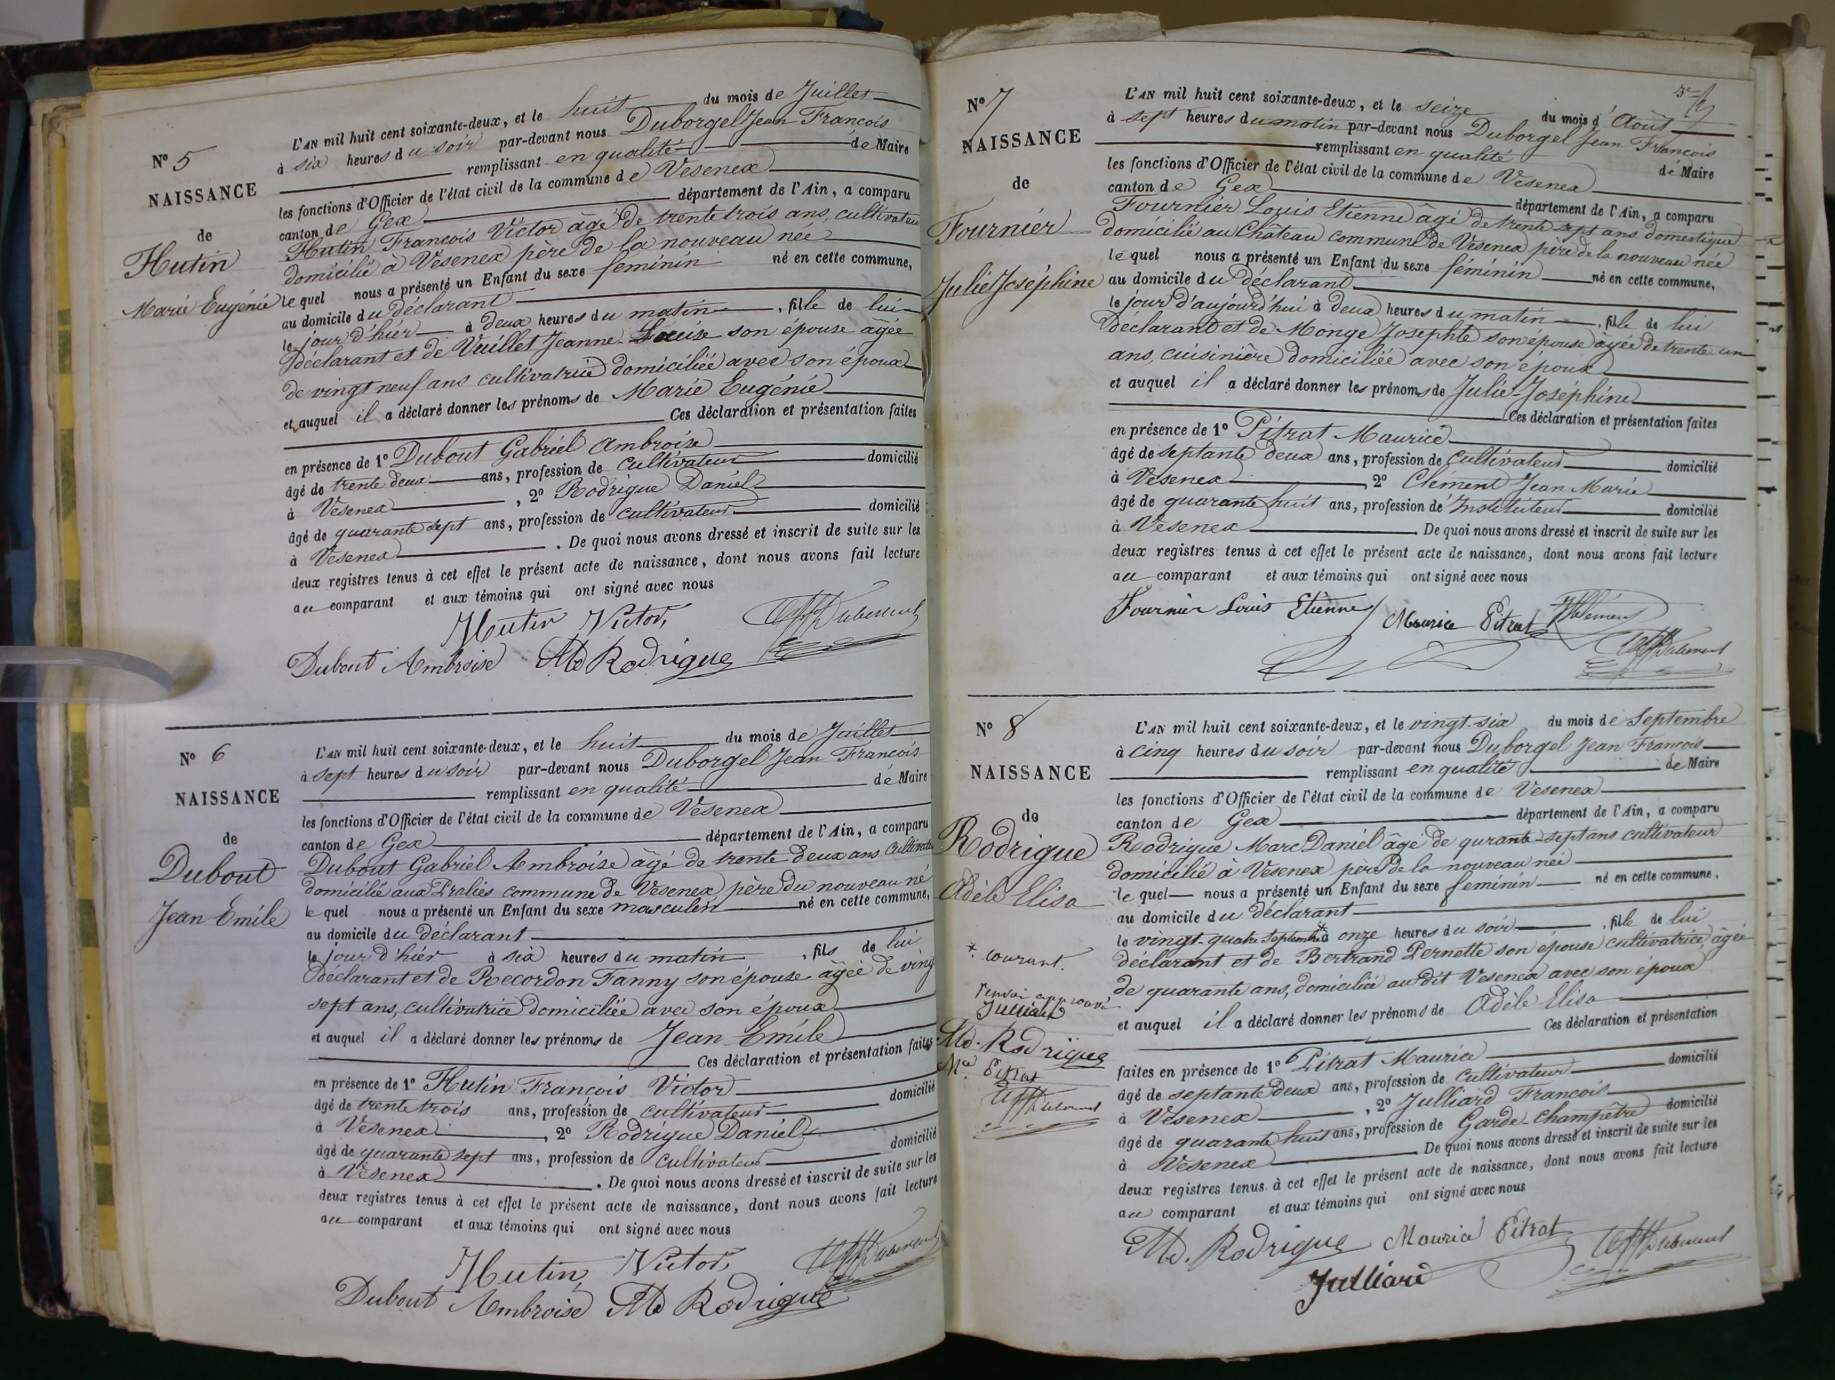 N° 5
NAISSANCE
de
Hutin
Marie Eugénie
L'AN mil huit cent soixante-deux, et le huit du mois de Juillet
à six heures du soir par-devant nous Duborgel Jean François
remplissant en qualité de Maire
les fonctions d'Officier de l'état civil de la commune de Vesenex
canton de Gex département de l'Ain, a comparu
Hutin François Victor âgé de trente trois ans, cultivateur
domicilié à Vesenex père de la nouveau née
le quel nous a présenté un Enfant du sexe féminin né en cette commune,
au domicile du déclarant
le jour d'hier à deux heures du matin, fille de lui
déclarant et de Vuillet Jeanne Louise son épouse âgée
de vingt neuf ans cultivatrice domiciliée avec son époux
et auquel il a déclaré donner les prénoms de Marie Eugénie
Ces déclaration et présentation faites
en présence de 1° Dubout Gabriel Ambroise
âgé de trente deux ans, profession de cultivateur domicilié
à Vesenex, 2° Rodrigue Daniel
âgé de quarante sept ans, profession de cultivateur domicilié
à Vesenex. De quoi nous avons dressé et inscrit de suite sur les
deux registres tenus à cet effet le présent acte de naissance, dont nous avons fait lecture
au comparant et aux témoins qui ont signé avec nous
Hutin Victor
Dubout Ambroise Md Rodrigue
N° 6
NAISSANCE
de
Dubout
Jean Emile
L'AN mil huit cent soixante-deux, et le huit du mois de Juillet
à sept heures du soir par-devant nous Duborgel Jean François
remplissant en qualité de Maire
les fonctions d'Officier de l'état civil de la commune de Vesenex
canton de Gex département de l'Ain, a comparu
Dubout Gabriel Ambroise âgé de trente deux ans cultivateur
domicilié aux commune de Vesenex père du nouveau né
le quel nous a présenté un Enfant du sexe masculin né en cette commune,
au domicile du déclarant
le jour d'hier à six heures du matin, fils de lui
déclarant et de Recordon Fanny son épouse âgée de vingt
sept ans, cultivatrice domiciliée avec son époux
et auquel il a déclaré donner les prénoms de Jean Emile
Ces déclaration et présentation faites
en présence de 1° Hutin François Victor
âgé de trente trois ans, profession de cultivateur domicilié
à Vesenex, 2° Rodrigue Daniel
âgé de quarante sept ans, profession de cultivateur domicilié
à Vesenex. De quoi nous avons dressé et inscrit de suite sur les
deux registres tenus à cet effet le présent acte de naissance, dont nous avons fait lecture
au comparant et aux témoins qui ont signé avec nous
Hutin Victor
Dubout Ambroise Md Rodrigue
N° 7
NAISSANCE
de
Fournier
Julie Joséphine
L'AN mil huit cent soixante-deux, et le seize du mois d'Août
à sept heures du matin par-devant nous Duborgel Jean François
remplissant en qualité de Maire
les fonctions d'Officier de l'état civil de la commune de Vesenex
canton de Gex département de l'Ain, a comparu
Fournier Louis Etienne âgé de trente sept ans domestique
domicilié au Château commune de Vesenex père de la nouveau née
le quel nous a présenté un Enfant du sexe féminin né en cette commune,
au domicile du déclarant
le jour d'aujourd'hui à deux heures du matin, fille de lui
déclarant et de Monge Josephte son épouse âgée de trente un
ans, cuisinière domiciliée avec son époux
et auquel il a déclaré donner les prénoms de Julie-Joséphine
Ces déclaration et présentation faites
en présence de 1° Pitrat Maurice
âgé de septante deux ans, profession de cultivateur domicilié
à Vesenex, 2° Clément Jean Marie
âgé de quarante huit ans, profession d'Instituteur domicilié
à Vesenex De quoi nous avons dressé et inscrit de suite sur les
deux registres tenus à cet effet le présent acte de naissance, dont nous avons fait lecture
au comparant et aux témoins qui ont signé avec nous
Fournier Louis Etienne Maurice Pitrat Clément
N° 8
NAISSANCE
de
Rodrigue
Adèle Elisa
* courant.
renvoi approuvé
Julliard
Md. Rodrigue
Mce Pitrat
L'AN mil huit cent soixante-deux, et le vingt-six du mois de Septembre
à cinq heures du soir par-devant nous Duborgel Jean François
remplissant en qualité de Maire
les fonctions d'Officier de l'état civil de la commune de Vesenex
canton de Gex département de l'Ain, a comparu
Rodrigue Marc Daniel âgé de qurante-sept ans cultivateur
domicilié à Vesenex père de la nouveau née
le quel nous a présenté un Enfant du sexe féminin né en cette commune,
au domicile du déclarant
le vingt-quatre Septembre * à onze heures du soir, fille de lui
déclarant et de Bertrand Pernette son épouse cultivatrice, âgée
de quarante ans, domiciliée audit Vesenex avec son époux
et auquel il a déclaré donner les prénoms de Adèle Elisa
Ces déclaration et présentation
faites en présence de 1° Pitrat Maurice
âgé de septante deux ans, profession de cultivateur domicilié
à Vesenex, 2° Julliard François
âgé de quarante huit ans, profession de Garde-champêtre domicilié
à Vesenex De quoi nous avons dressé et inscrit de suite sur les
deux registres tenus à cet effet le présent acte de naissance, dont nous avons fait lecture
au comparant et aux témoins qui ont signé avec nous
Md. Rodrigue Maurice Pitrat
Julliard